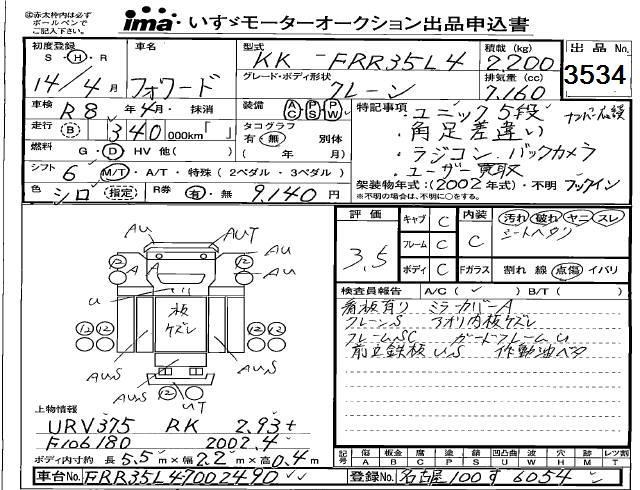 ㊟赤太枠内はボールペンでご記入下さい。
ima いすゞモーターオークション出品申込書
初度登録 S・H・R 14/4月
車名 フォワード
型式 KK-FRR35L4
積載(kg) 2,200
出品No. 3534
グレード・ボディ形状 クレーン
排気量(cc) 7,160
車検 R8年4月・抹消
装備 AC PS PW
特記事項 ・ユニック5段
・角足差違い
・ラジコン、バックカメラ
・ユーザー買取
走行 B 340,000km「 」
タコグラフ 有・無 別体
( 年 月)
燃料 G・D・HV 他( )
シフト 6 M/T・A/T・特殊(2ペダル・3ペダル)
架装物年式:(2002年式)・不明 フックイン
※不明の場合は、不明に○をする。
色 シロ 指定 R券 有・無 9,140円
評価 3.5
キャブ C
フレーム C
ボディ C
内装 C
汚れ 破れ ヤニ スレ
シートヘタリ
Fガラス 割れ 線 点傷 イバリ
検査員報告 A/C(✓) B/T( )
看板有り ミラーカバーA
クレーンS アオリ内板ケズレ
フレームSC ガードフレームU
前立鉄板US 作動油ベタ
AU AUT AU
12 12
A A
U
板ケズレ
12 12 12 12
AUS AUS
AUS
12
UT
上物情報
URV375 RK 2.93t
F106180 2002.4
ボディ内寸約 長5.5m×幅2.2m×高0.4m
記号 傷 A 板金 B 腐 C 塗 P 錆 S 凹 U 凸凹曲 U 波 W 穴 H 欠 M 汚 T レツ割
車台No. FRR35L47002490
登録No. 名古屋100す6054